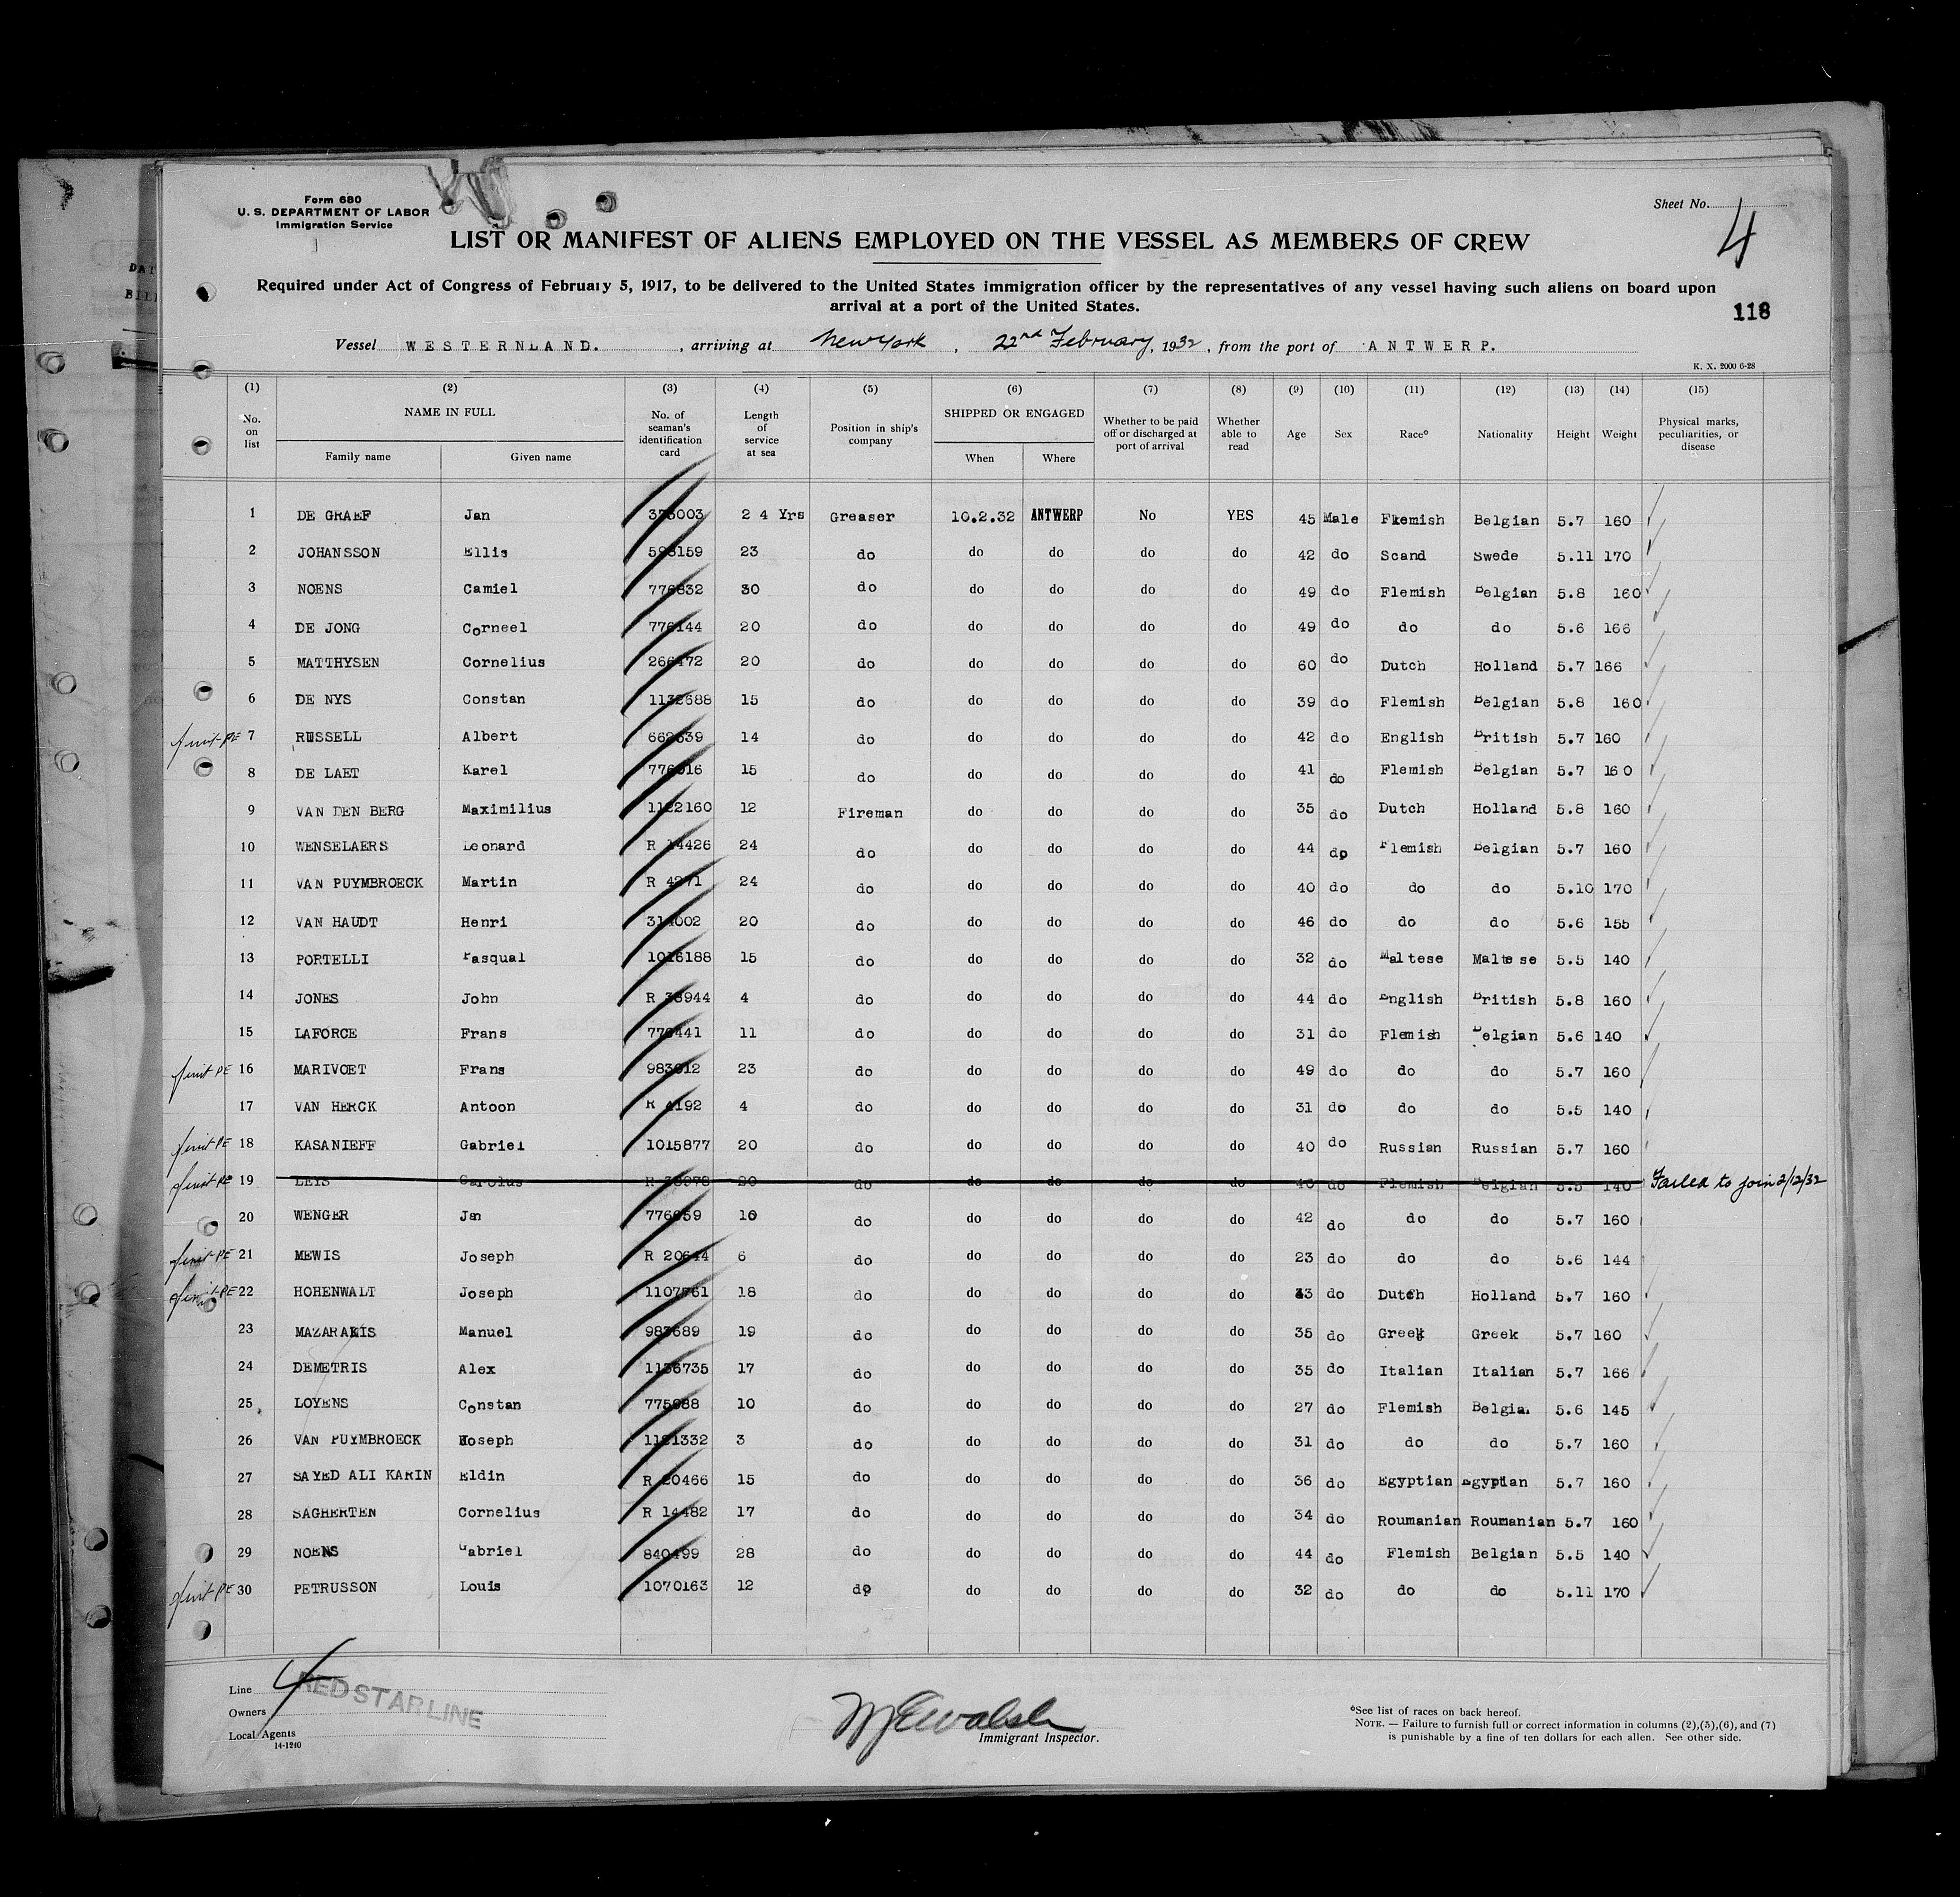 Form 680
U. S. DEPARTMENT OF LABOR
Immigration Service
Sheet No. 4
LIST OR MANIFEST OF ALIENS EMPLOYED ON THE VESSEL AS MEMBERS OF CREW
Required under Act of Congress of February 5, 1917, to be delivered to the United States immigration officer by the representatives of any vessel having such aliens on board upon
arrival at a port of the United States.
118
Vessel WESTERNLAND. , arriving at New York , 22nd February, 1932 , from the port of ANTWERP.
K. X. 2000 6-28
(1) (2) (3) (4) (5) (6) (7) (8) (9) (10) (11) (12) (13) (14) (15)
No. on list NAME IN FULL Family name Given name No. of seaman's identification card Length of service at sea Position in ship's company SHIPPED OR ENGAGED When Where Whether to be paid off or discharged at port of arrival Whether able to read Age Sex Race° Nationality Height Weight Physical marks, peculiarities, or disease
1 DE GRAEF Jan 2 4 Yrs Greaser 10.2.32 ANTWERP No YES 45 Male Flemish Belgian 5.7 160
2 JOHANSSON Ellis 23 do do do do do 42 do Scand Swede 5.11 170
3 NOENS Camiel 30 do do do do do 49 do Flemish Belgian 5.8 160
4 DE JONG Corneel 776144 20 do do do do do 49 do do do 5.6 166
5 MATTHYSEN Cornelius 20 do do do do do 60 do Dutch Holland 5.7 166
6 DE NYS Constan 1132688 15 do do do do do 39 do Flemish Belgian 5.8 160
7 RUSSELL Albert 14 do do do do do 42 do English British 5.7 160
8 DE LAET Karel 15 do do do do do 41 do Flemish Belgian 5.7 160
9 VAN DEN BERG Maximilius 1122160 12 Fireman do do do do 35 do Dutch Holland 5.8 160
10 WENSELAERS Leonard R 14426 24 do do do do do 44 do Flemish Belgian 5.7 160
11 VAN PUYMBROECK Martin R 4271 24 do do do do do 40 do do do 5.10 170
12 VAN HAUDT Henri 314002 20 do do do do do 46 do do do 5.6 155
13 PORTELLI Pasqual 1016188 15 do do do do do 32 do Maltese Maltese 5.5 140
14 JONES John R 38944 4 do do do do do 44 do English British 5.8 160
15 LAFORCE Frans 776441 11 do do do do do 31 do Flemish Belgian 5.6 140
16 MARIVOET Frans 23 do do do do do 49 do do do 5.7 160
17 VAN HERCK Antoon R 4192 4 do do do do do 31 do do do 5.5 140
18 KASANIEFF Gabriel 1015877 20 do do do do do 40 do Russian Russian 5.7 160
19 LEYS Carolus R 38978 20 do do do do do 40 do Flemish Belgian 5.5 140 Failed to join 2/12/32
20 WENGER Jan 10 do do do do do 42 do do do 5.7 160
21 MEWIS Joseph R 20644 6 do do do do do 23 do do do 5.6 144
22 HOHENWALT Joseph 18 do do do do do 43 do Dutch Holland 5.7 160
23 MAZARAKIS Manuel 983689 19 do do do do do 35 do Greek Greek 5.7 160
24 DEMETRIS Alex 1136735 17 do do do do do 35 do Italian Italian 5.7 166
25 LOYENS Constan 10 do do do do do 27 do Flemish Belgian 5.6 145
26 VAN PUYMBROECK Joseph 1121332 3 do do do do do 31 do do do 5.7 160
27 SAYED ALI KARIN Eldin R 20466 15 do do do do do 36 do Egyptian Egyptian 5.7 160
28 SAGHERTEN Cornelius R 14482 17 do do do do do 34 do Roumanian Roumanian 5.7 160
29 NOENS Gabriel 840499 28 do do do do do 44 do Flemish Belgian 5.5 140
30 PETRUSSON Louis 1070163 12 do do do do do 32 do do do 5.11 170
Line 4 RED STAR LINE
Owners
Local Agents
14-1240
Immigrant Inspector.
°See list of races on back hereof.
NOTE. — Failure to furnish full or correct information in columns (2),(5),(6), and (7)
is punishable by a fine of ten dollars for each alien. See other side.